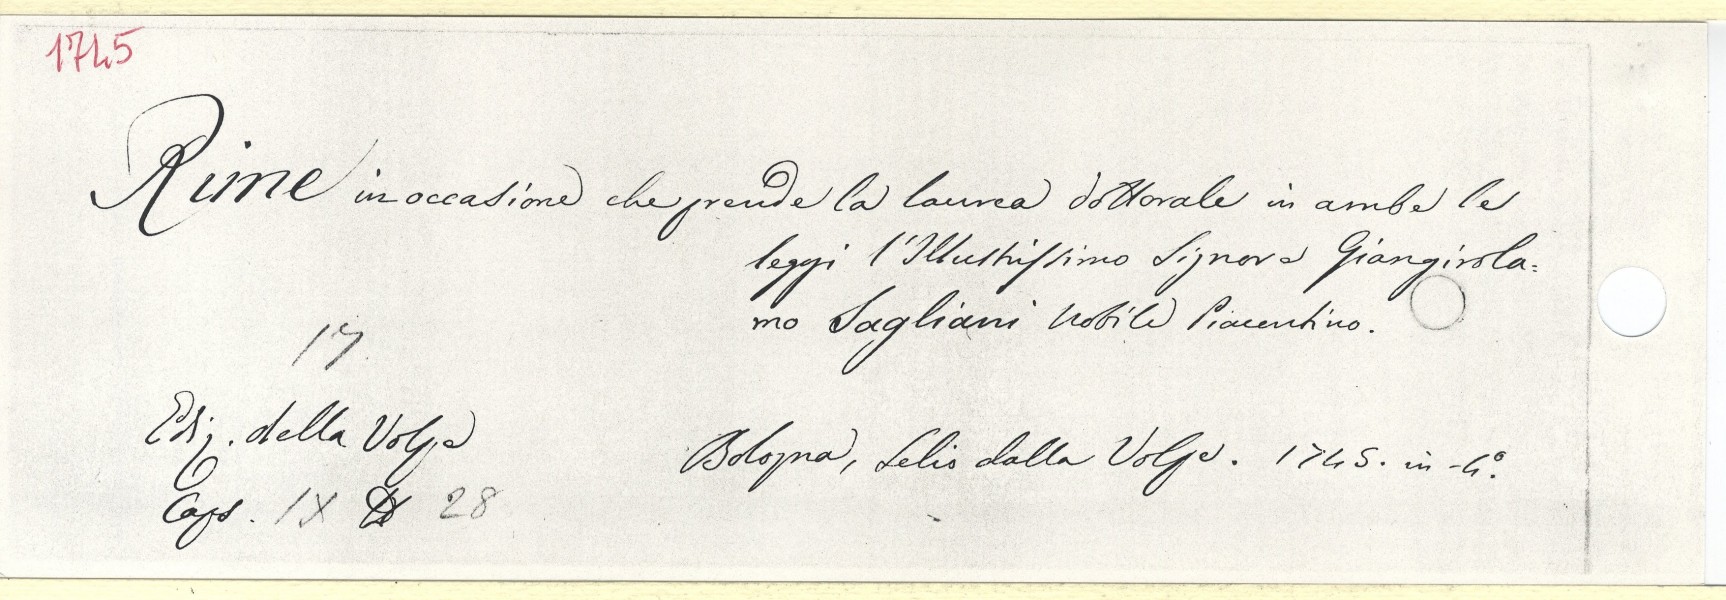 1745
Rime in occasione che prende la laurea dottorale in ambe le
leggi l'Illustrissimo Signore Giangirola=
mo Sagliani Nobile Piacentino.
17
Ediz. della Volpe
Bologna, Lelio dalla Volpe. 1745. in -4°.
Caps. IX 28